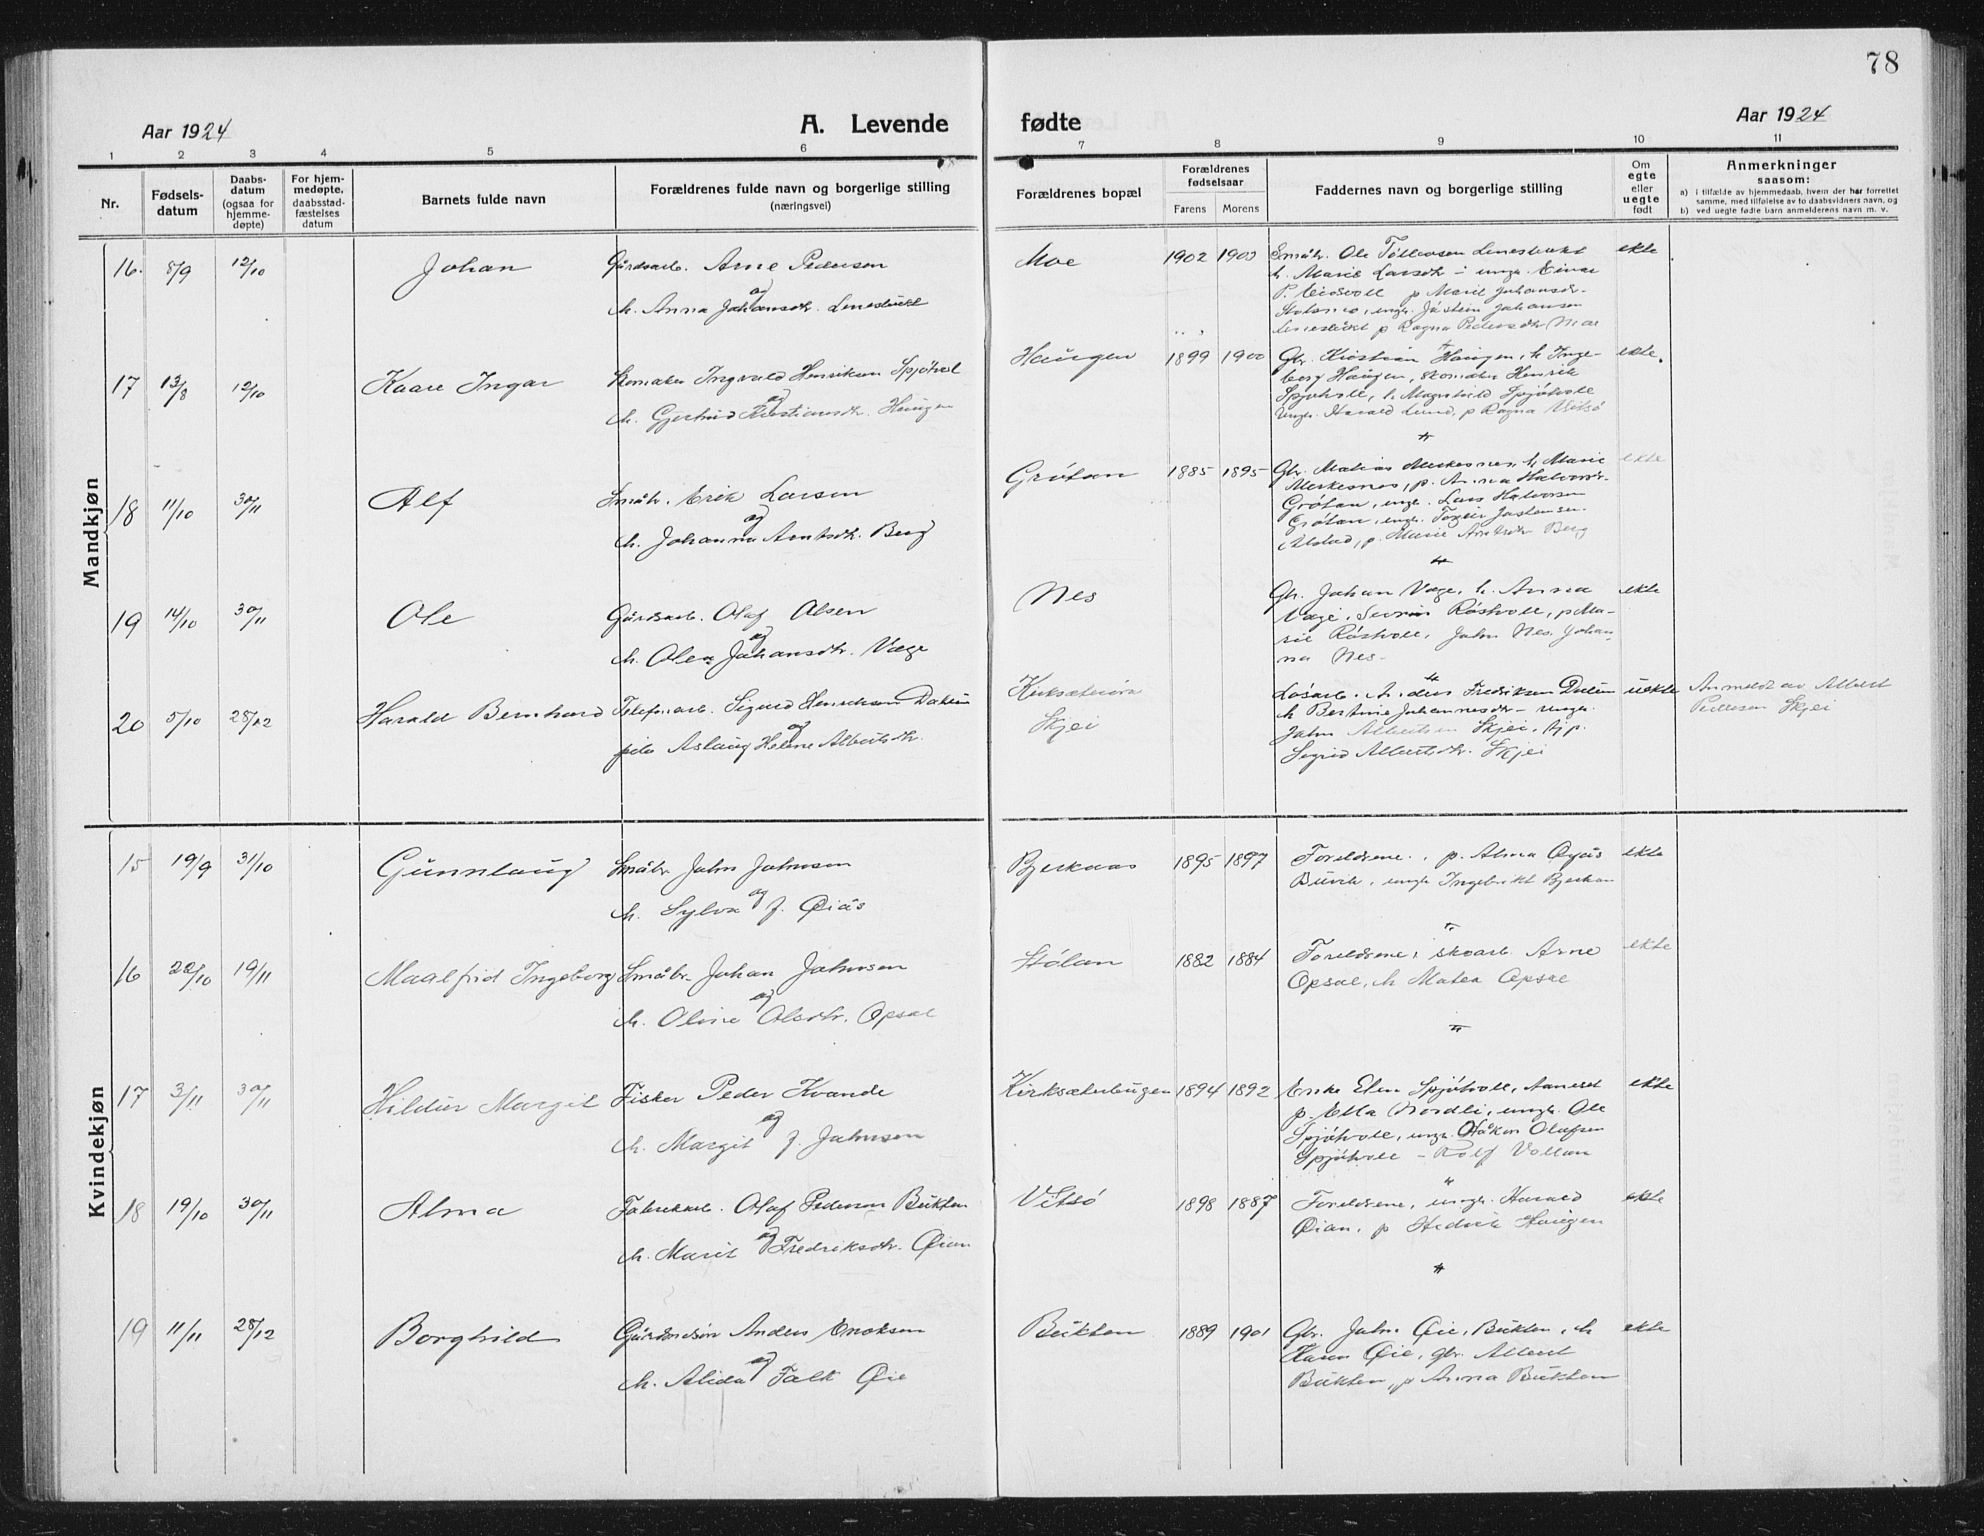 78
Aar 1924
A. Levende
fødte
Aar 1924
1 2 3 4 5 6 7 8 9 10 11
Nr.
Fødsels-
datum
Daabs-
datum
(ogsaa for
hjemme-
døpte)
For hjem-
medøpte,
daabsstad-
fæstelses
datum
Barnets fulde navn
Forældrenes fulde navn og borgerlige stilling
(næringsvei)
Forældrenes bopæl
Forældrenes
fødselsaar
Farens Morens
Faddernes navn og borgerlige stilling
Om
egte
eller
uegte
født
Anmerkninger
saasom:
a) i tilfælde av hjemmedaab, hvem der har forrettet
samme, med tilføielse av to daabsvidners navn, og
b) ved uegte fødte barn anmelderens navn m. v.
Mandkjøn
16. 8/9 12/10 Johan Gårdsarb. Arne Pedersen
og
h. Anna Johansdtr. Lenesbukt
Moe 1902 1900 Småbr. Ole Tøllevsen Lenesbukt
h. Marie Larsdtr - ungk. Einar
P. Eidsvoll p Marit Johansdr.
ungk. Jostein Johansen
Lenesbukt p Ragna Pedersdtr Moe
ekte
17 13/8 12/10 Kaare Ingar Skomaker Ingvald Henriksen Spjøtvol
og
h. Gjertrud Kristiansdtr. Haugen
Haugen 1899 1900 Gbr. Kristian Haugen, h. Inge-
borg Haugen, skomaker Henrik
Spjøtvoll, h. Magnhild Spjøtvoll
Ungk. Harald Lund, p Ragna Vitsø
ekte.
18 11/10 30/11 Alf Småbr. Erik Larsen
og
h. Johanna Arntsdtr. Berg
Grøtan 1885 1895 Gbr. Matias Merkesnes, h. Marie
Merkesnes, p. Anna Halvorsdr.
Grøtan, ungk. Lars Halvorsen
Grøtan, ungk. Torgeir Jostensen
Alstad, p. Marie Arntsdtr Berg
ekte
19 14/10 30/11 Ole Gårdsarb. Olaf Olsen
og
h. Olea Johansdtr. Vage
Nes Gbr. Johan Vage, h. Anna
Vage, Sevrin Røstvoll, p Ma-
rie Røstvoll, John Nes, Johan-
na Nes-
ekte
20 5/10 28/12 Harald Bernhard Telefonarb. Sigurd Henriksen Dalum
og
pike Aslaug Helene Albertsdtr.
Kirksæterøra
Skjei
Løsarb. Anders Fredriksen Dalum
h Bertine Johannesdtr - ungk.
John Albertsen Skjei, tjp.
Sigrid Albertsdtr. Skjei
uekte Anmeldt av Albert
Pedersen Skjei
Kvindekjøn
15 19/9 31/10 Gunnlaug Småbr John Johnsen
og
h. Sylva f. Øiås
Bjerknas 1895 1897 Foreldrene, p. Alma Øyås
Buvik, ungk Ingebrikt Bjerknas
ekte
16 22/10 19/11 Maalfrid Ingeborg Småbr. Johan Johnsen
og
h. Oline Olsdtr. Opsal
Stølan 1882 1884 Foreldrene, skoarb. Arne
Opsal, h Matea Opsal
ekte
17 3/11 30/11 Hildur Margit Fisker Peder Kvande
og
h. Margit f. Johnsen
Kirksæterbugen 1894 1892 Enke Elen Spjøtvoll, Aaneset
p. Ella Nordli, ungk. Ole
Spjøtvoll, ungk. Håkon Olafsen
Spjøtvoll - Rolf Vollan
ekte
18 19/10 30/11 Alma Fabrikarb. Olaf Pedersen Bukten
og
h. Marit Fredriksdtr. Øian
Vitsø 1898 1887 Foreldrene, ungk. Harald
Øian, p Hedvik Haugen
ekte
19 11/11 28/12 Borghild Gårdmdsøn Anders Enoksen
og
h. Alida Falk Øie
Bukten 1889 1901 Gbr. John Øie, Bukten, h
Karen Øie, gbr. Albert
Bukten, p Anna Bukten
ekte